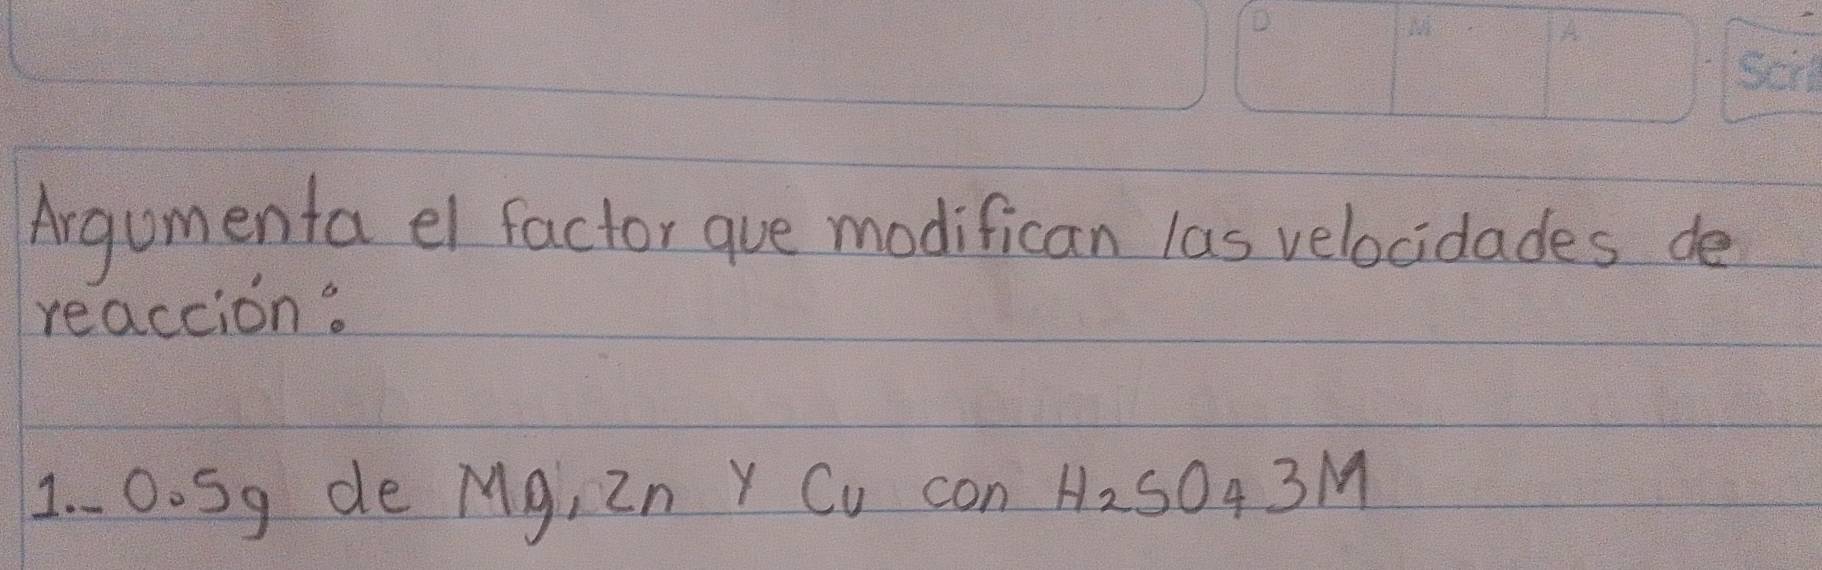 D M A
Scri
Argumenta el factor que modifican las velocidades de
reacción:
1.- 0.5g de Mg, Zn y Cu con H2SO4 3M